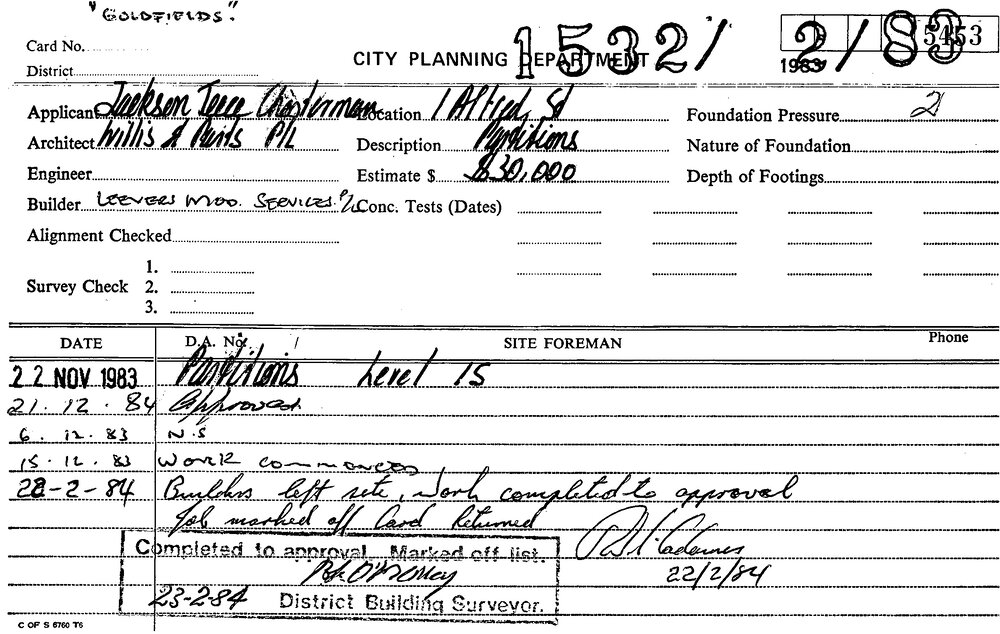 "GOLDFIELDS".
Card No.
5453
1532/ 2/83
CITY PLANNING DEPARTMENT
1983
District
Applicant Jackson Teece Chesterman Location 1 Alfred St Foundation Pressure 2
Architect Willis & P/L Description Partitions Nature of Foundation
Engineer Estimate $ $30,000 Depth of Footings
Builder LEEVERS MOD. SERVICES P/L Conc. Tests (Dates)
Alignment Checked
1.
Survey Check 2.
3.
DATE D.A. No. / SITE FOREMAN Phone
22 NOV 1983 Partitions Level 15
21.12.84 Approved.
6.12.83 N.S
15.12.83 WORK COMMENCED
28-2-84 Builders left site, work completed to approval
Job marked off Card Returned
Completed to approval. Marked off list.
22/2/84
23-2-84 District Building Surveyor.
C OF S 6760 T6